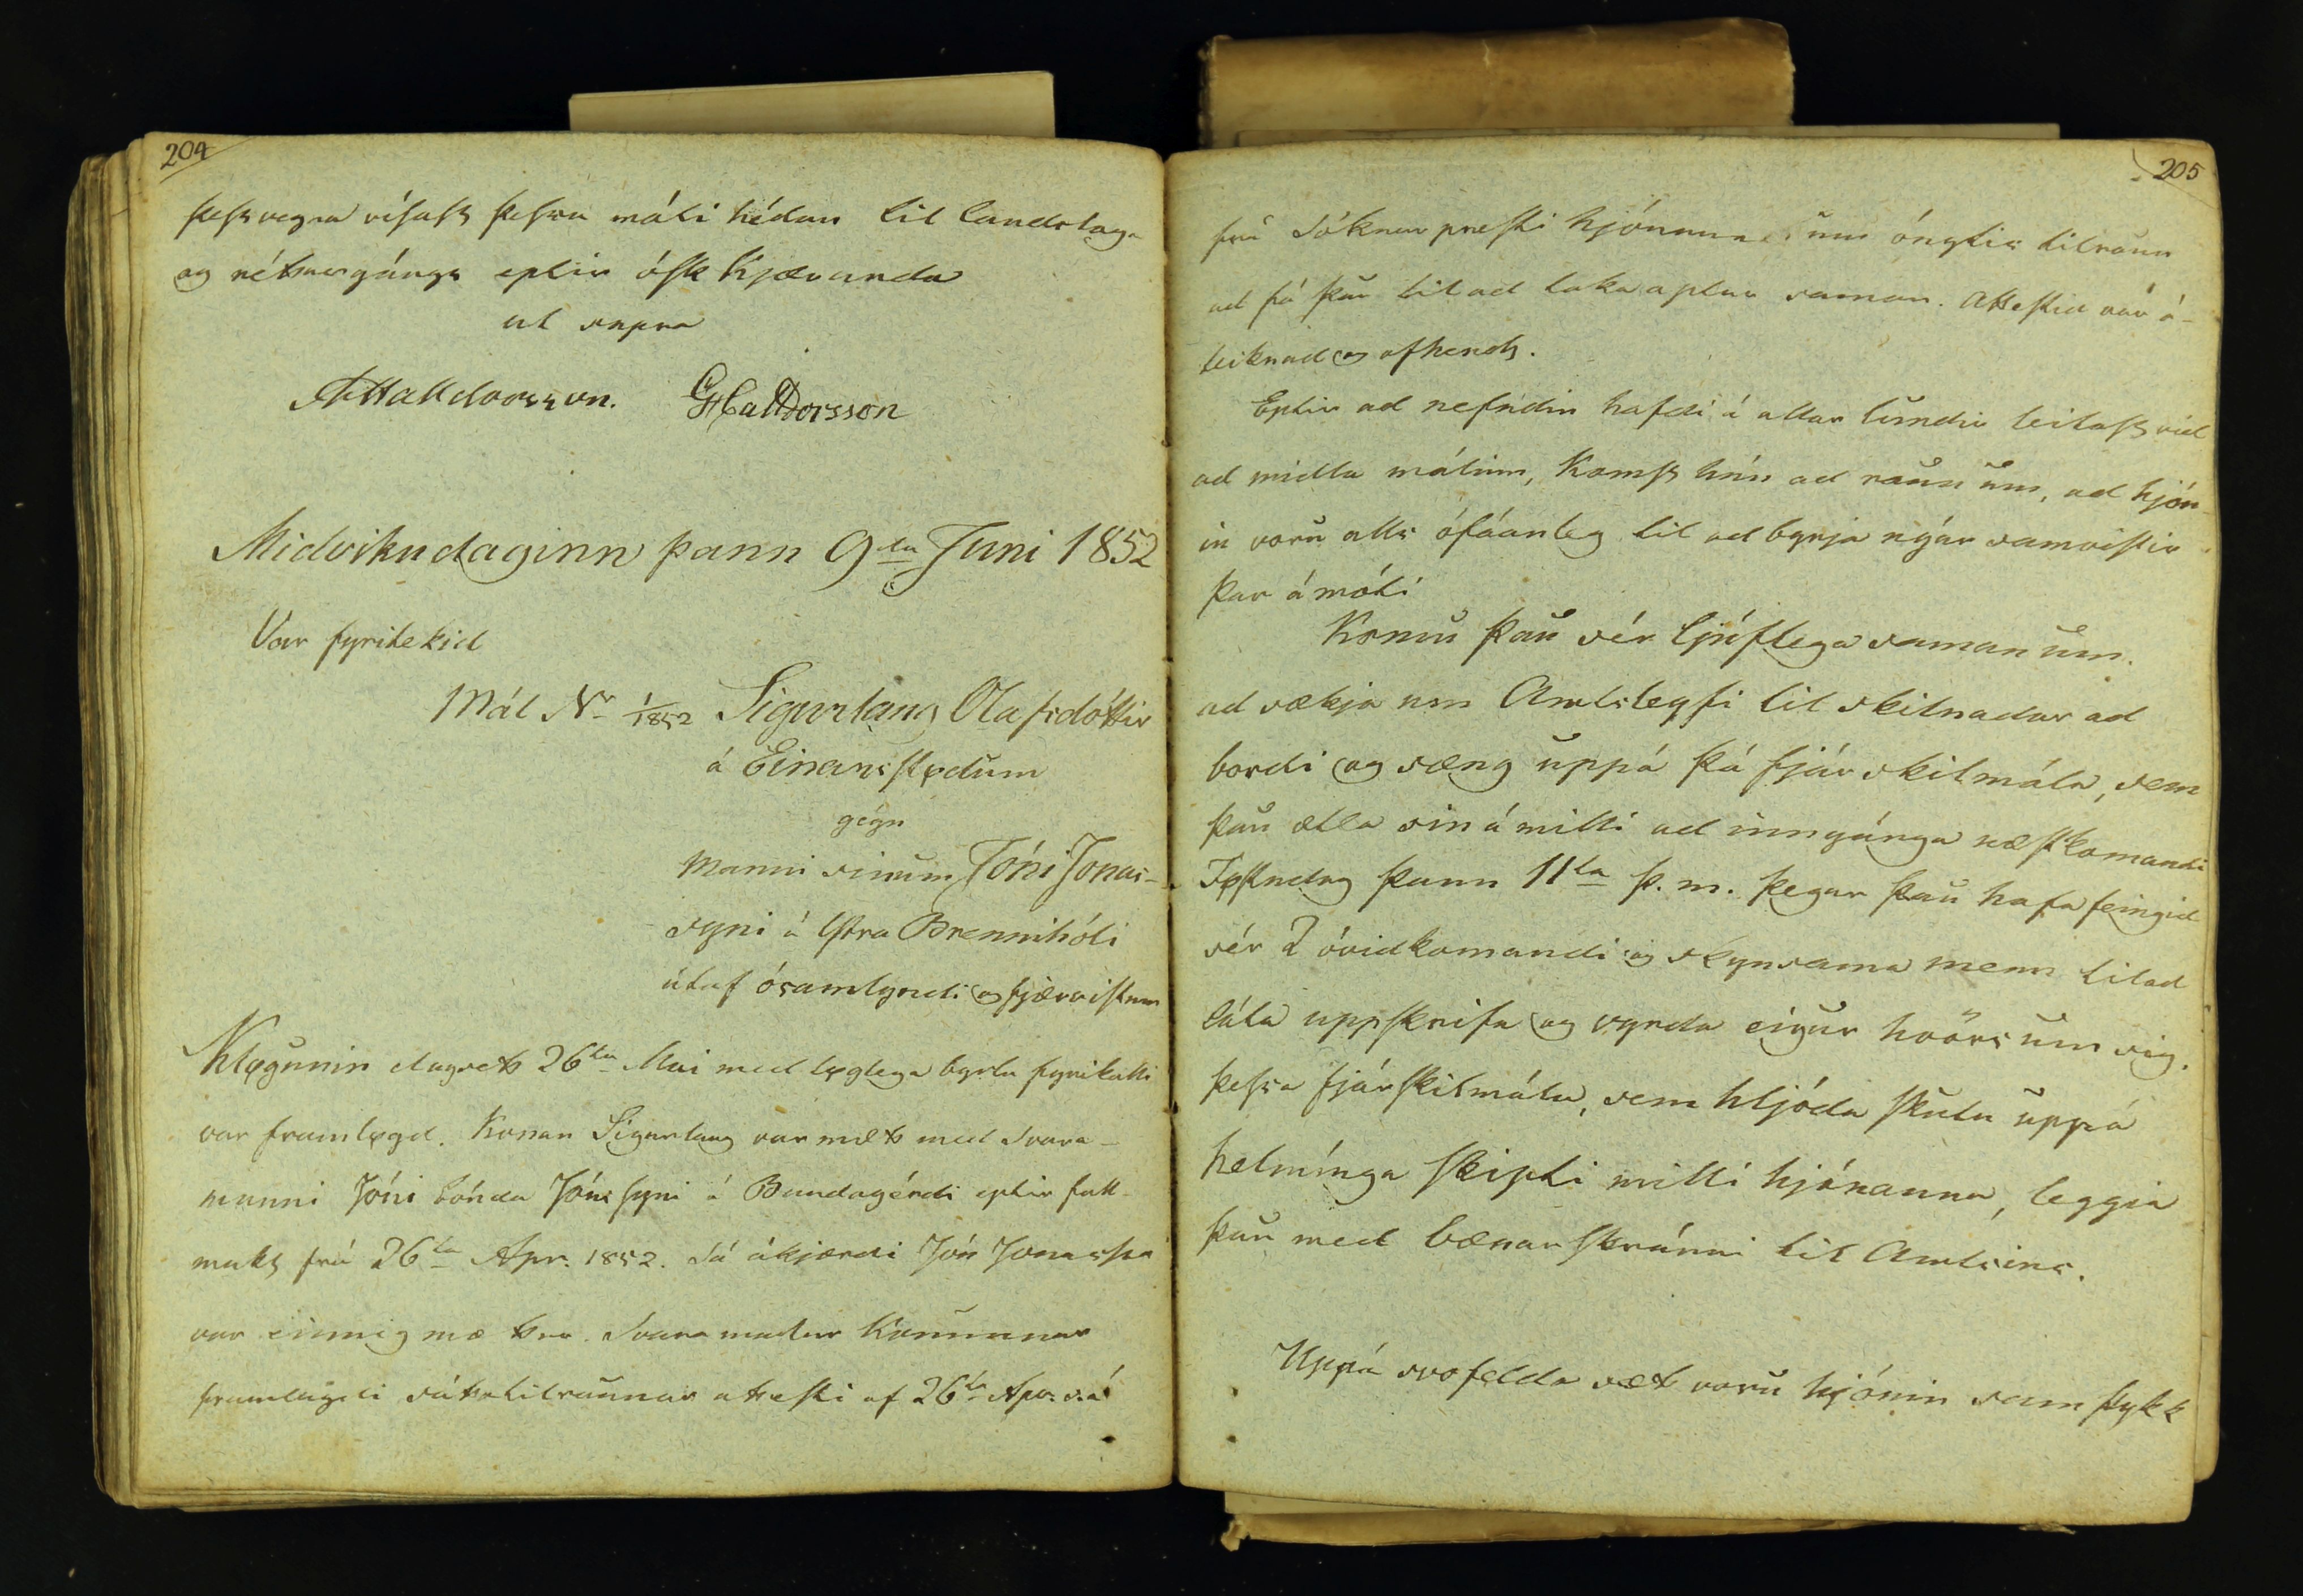 204
þessvegna vísast þessu máli hédan til landslaga
og réttargángs eptir ósk kjæranda
ut supra
AHalldorsson. GHalldorsson
Midvikudaginn þann 9da Juni 1852
Var fyritekid
Mál Nr 1/1852 Sigurlaug Olafsdóttir
á Einarsstødum
gégn
manni sinum Jóni Jonas-
syni á Ytra Brennihóli
útaf ósamlyndi og fjærvistum
Kløgunin dagsett 26ta Mai med løglega byrtu fyrikalli
var framløgd. Konan Sigurlaug var mætt med svara-
manni Jóni bónda Jónssyni á Bandagérdi eptir full-
makt frá 26ta Apr. 1852. Sá ákjærdi Jón Jonasson
var einnig mættur. Svaramadur konunnar
framlagdi sáttatilraunar attesti af 26ta Apr. s.á.
205
frá Sóknarpresti hjónanna um ónýtis tilraun
ad fá þau til ad taka aptur saman. Attestid var á-
teiknad og afhendt.
Eptir ad nefndin hafdi á allar lundir leitast vid
ad midla málum, komst hún ad raun um, ad hjón
in voru alls ófáanleg til ad byrja nýar samvistir
þar á móti
Komu þau sér ljúflega saman um
ad sækja um Amtsleyfi til skilnadar ad
bordi og sæng uppá þá fjárskilmála, sem
þau ætla sin á milli ad inngánga næstkomandi
Føstudag þann 11ta þ. m. þegar þau hafa feingid
sér 2 óvidkomandi og skynsama menn til ad
láta uppskrifa og vyrda eigur hvörs um sig.
þessa fjárskilmála, sem hljóda skulu uppá
helmínga skipti milli hjónanna, leggia
þau med bænarskránni til Amtsins.
Uppá svofellda sætt voru hjónin samþykk